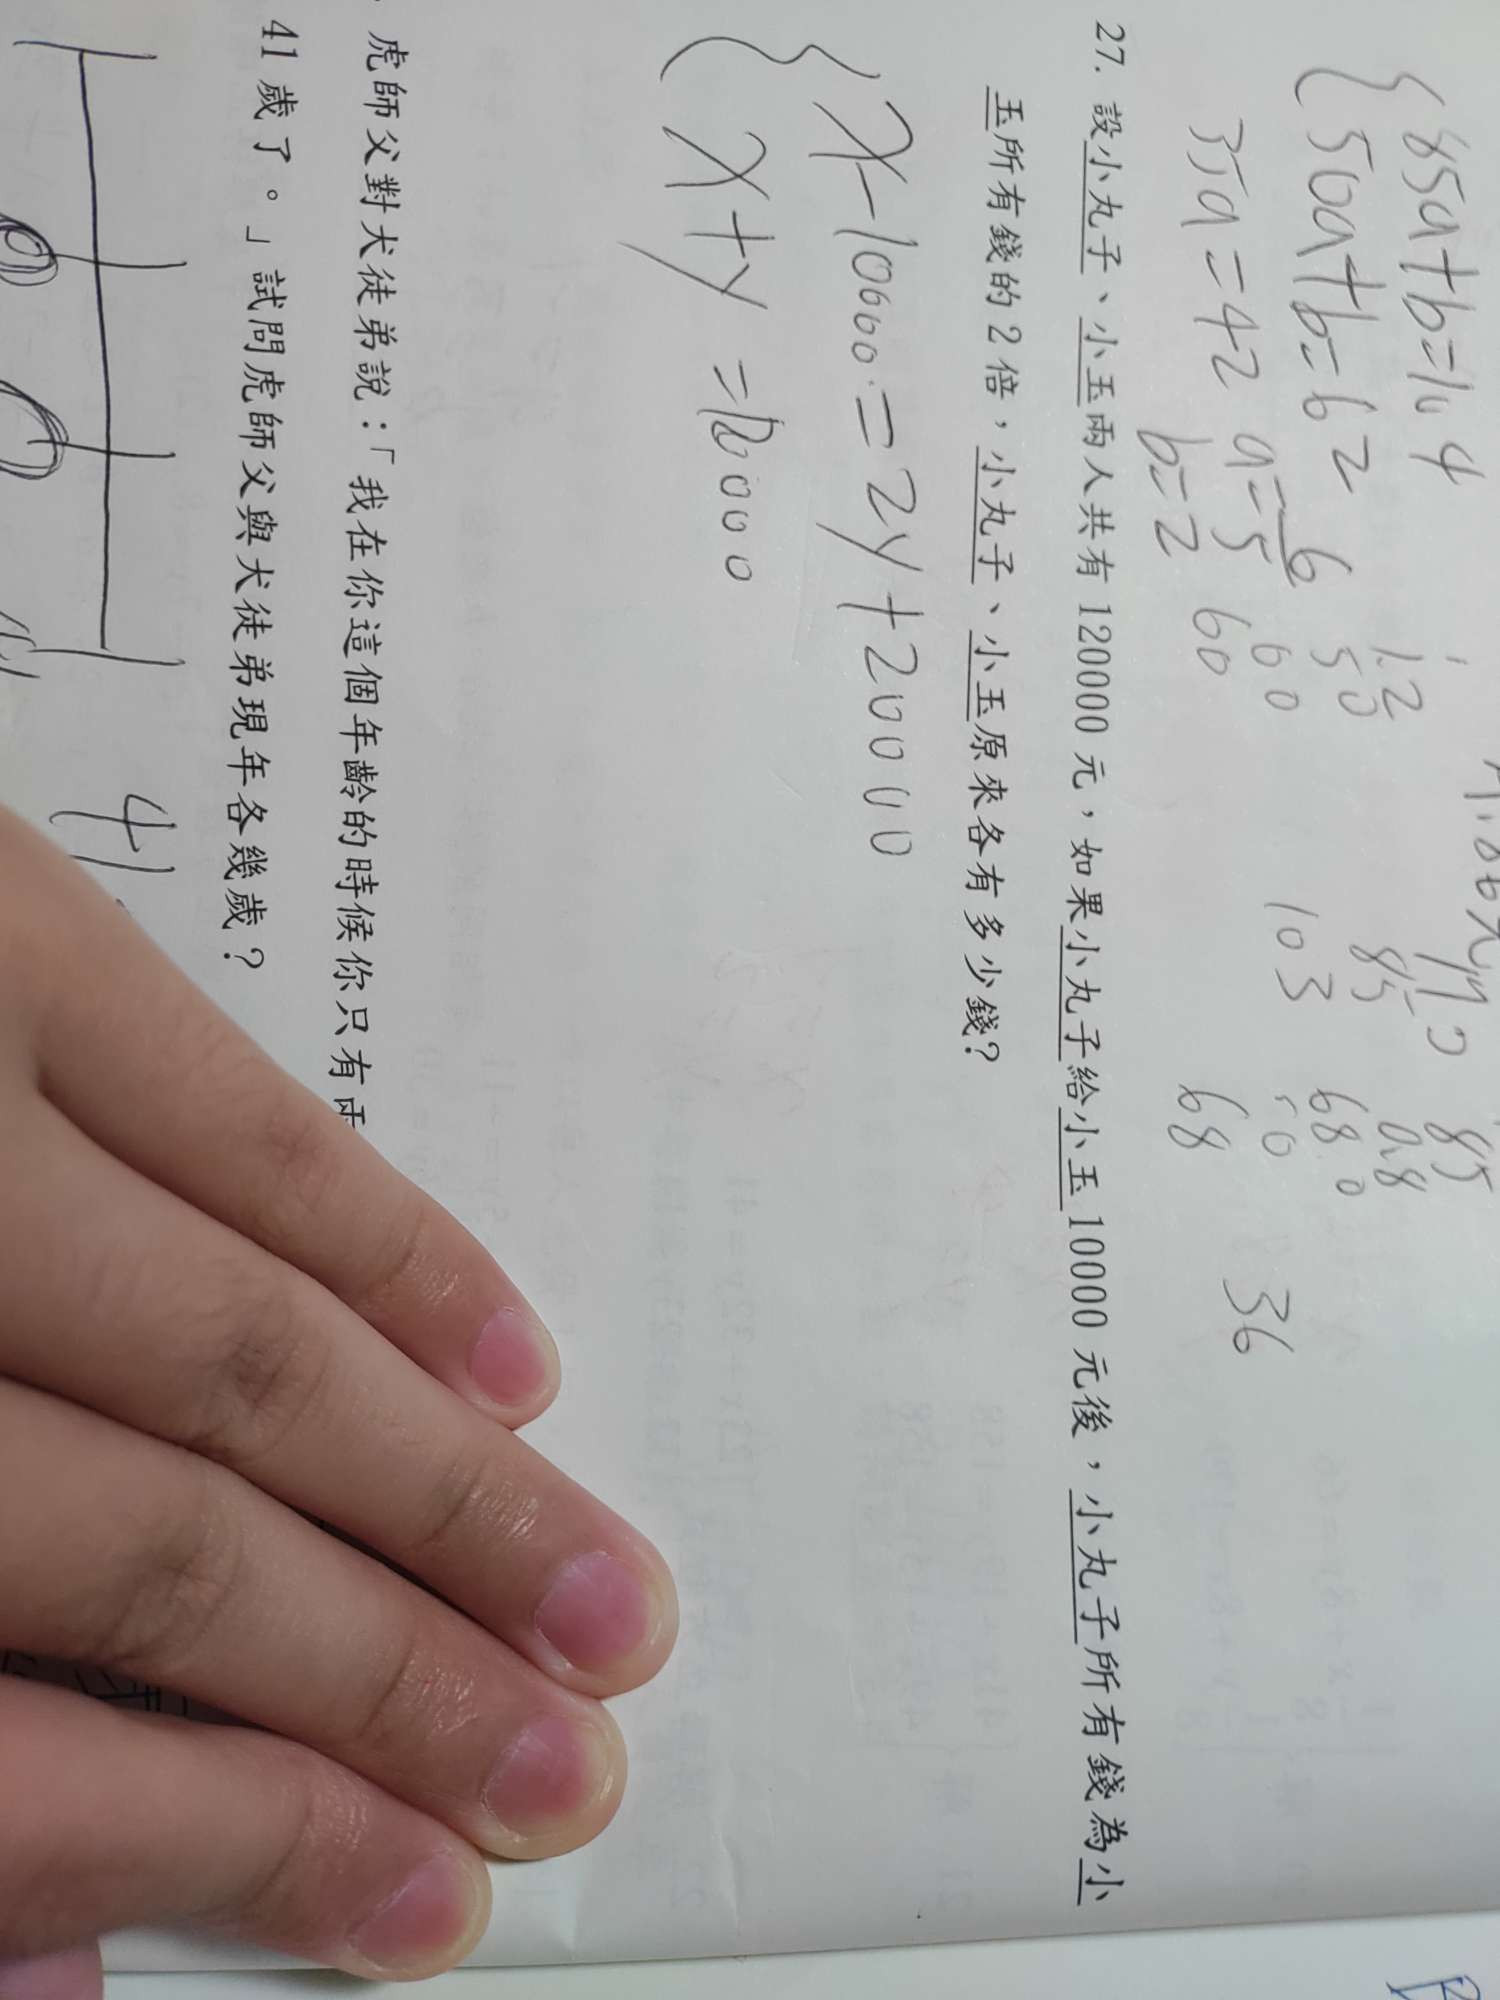 85a+b=104
50a+b=62
35a=42 a=6/5 60
b=2 60
1.2
50
60
85
103
85
0.8
68.0
68
36
27. 設小丸子、小玉兩人共有120000元，如果小丸子給小玉10000元後，小丸子所有錢為小
玉所有錢的2倍，小丸子、小玉原來各有多少錢？
x-10000=2y+20000
x+y=120000
虎師父對犬徒弟說：「我在你這個年齡的時候你只有兩
41歲了。」試問虎師父與犬徒弟現年各幾歲？
41